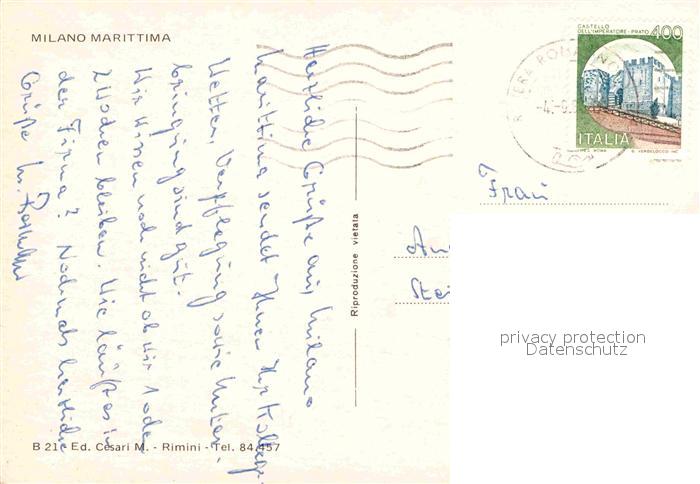 MILANO MARITTIMA
Herzliche Grüße aus Milano
Marittima sendet Ihnen Ihr Kollege.
Wetter, Verpflegung sowie Unter-
bringung sind gut.
Wir wissen noch nicht ob wir 1 oder
2 Wochen bleiben. Wie läuft es in
der Firma? Nochmals herzliche
Grüße
B 21 Ed. Cesari M. - Rimini - Tel. 84/457
Riproduzione vietata
CASTELLO
DELL'IMPERATORE - PRATO 400
ITALIA
Frau
privacy protection
Datenschutz